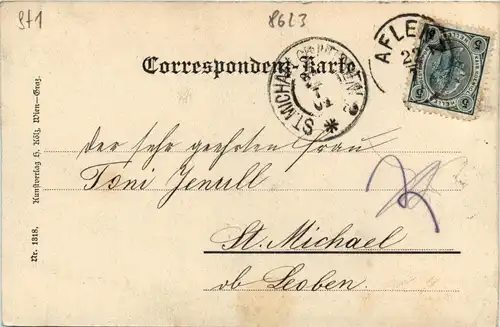 St1
8623
AFLENZ
Correspondenz-Karte.
ST. MICHAEL
Der sehr geehrten Frau
Toni Jenull
St. Michael
ob Leoben.
Nr. 1318. Kunstverlag H. Kölz, Wien—Graz.
5 5